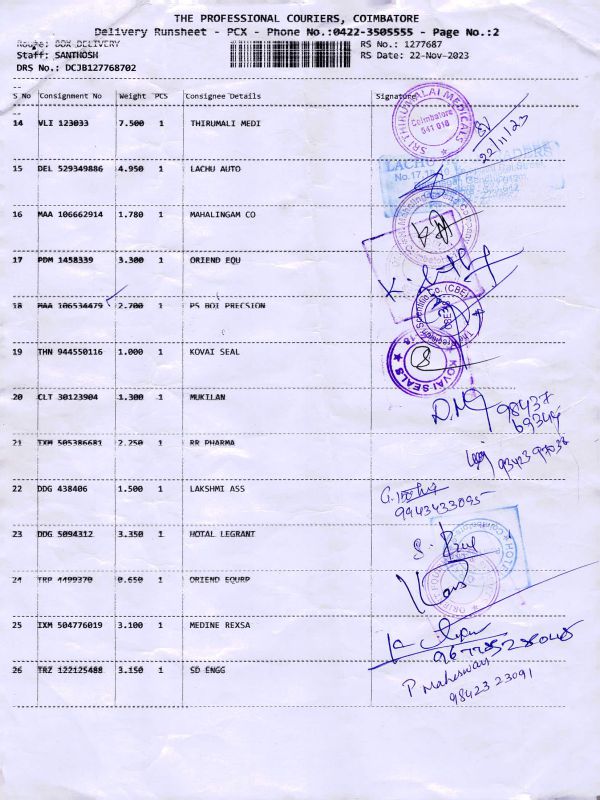 THE PROFESSIONAL COURIERS, COIMBATORE
Delivery Runsheet - PCX - Phone No.:0422-3505555 - Page No.:2
Route: BOX DELIVERY RS No.: 1277687
Staff: SANTHOSH RS Date: 22-Nov-2023
DRS No.: DCJB127768702
S No Consignment No Weight PCS Consignee Details Signature
14 VLI 123033 7.500 1 THIRUMALI MEDI
SRI THIRUMALAI MEDICALS
Coimbatore
641 018
22/11/23
15 DEL 529349886 4.950 1 LACHU AUTO
LACHU
No.17,
16 MAA 106662914 1.780 1 MAHALINGAM CO
17 PDM 1458339 3.300 1 ORIEND EQU
18 MAA 106534479 2.700 1 PS BOI PRECSION
Scientific Co. (CBE)
19 THN 944550116 1.000 1 KOVAI SEAL
KOVAI SEALS
20 CLT 30123904 1.300 1 MUKILAN
98437
69344
21 IXM 505386681 2.250 1 RR PHARMA
22 DDG 438406 1.500 1 LAKSHMI ASS
9943433095
23 DDG 5094312 3.350 1 HOTAL LEGRANT
HOTEL
24 TRP 4499370 0.650 1 ORIEND EQURP
25 IXM 504776019 3.100 1 MEDINE REXSA
26 TRZ 122125488 3.150 1 SD ENGG
P Maheswary
98423 23091